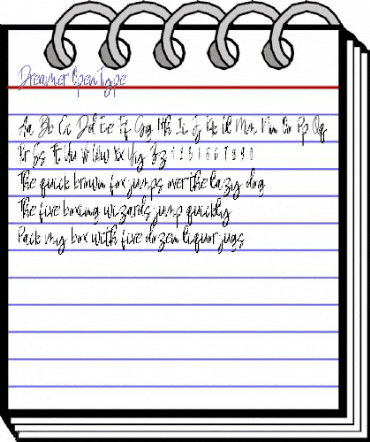 Dreamer Open Type
Aa Bb Cc Dd Ee Ff Gg Hh Ii Jj Kk Ll Mm Nn Oo Pp Qq
Rr Ss Tt Uu Vv Ww Xx Yy Zz 1 2 3 4 5 6 7 8 9 0
The quick brown fox jumps over the lazy dog
The five boxing wizards jump quickly
Pack my box with five dozen liquor jugs